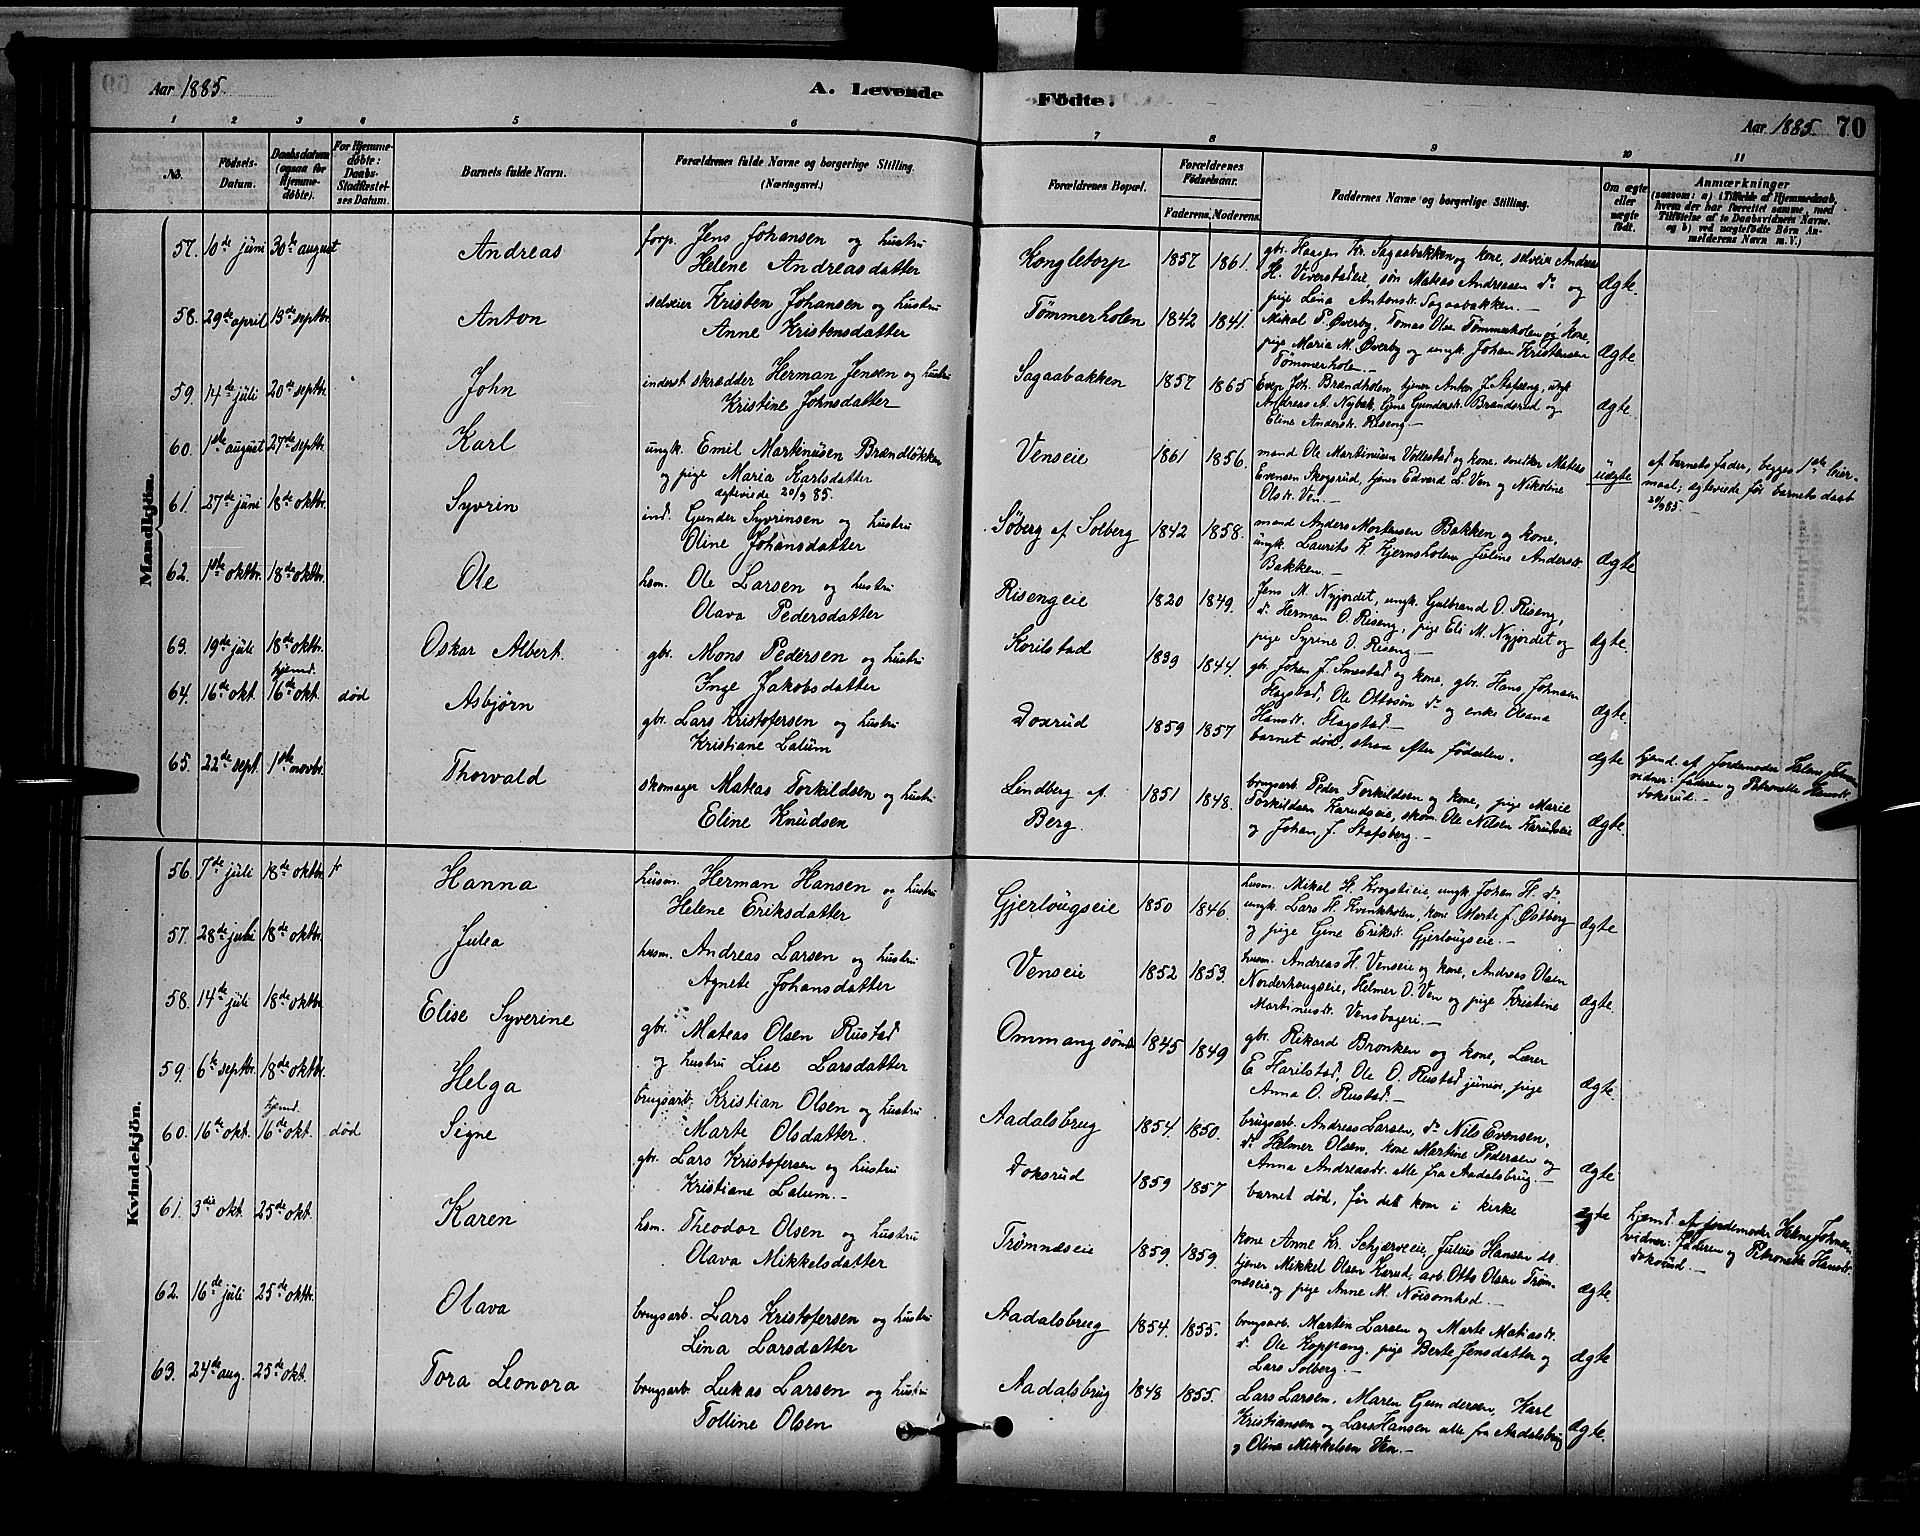 Aar 1885.
A. Levende
Födte.
Aar 1885. 70
1 2 3 4 5 6 7 8 9 10 11
No.
Födsels-
Datum.
Daabsdatum
(ogsaa for
Hjemme-
döbte).
For Hjemme-
döbte:
Daabs-
Stadfæstel-
ses Datum.
Barnets fulde Navn.
Forældrenes fulde Navne og borgerlige Stilling.
(Næringsvei.)
Forældrenes Bopæl.
Forældrenes
Födselsaar.
Faderens. Moderens.
Faddernes Navne og borgerlige Stilling.
Om ægte
eller
uægte
födt.
Anmærkninger
(saasom: a) i Tilfælde af Hjemmedaab,
hvem der har forrettet samme, med
Tilföielse af to Daabsvidners Navne.
og b) ved uægtefödte Börn An-
melderens Navn m. V.)
Mandkjön.
57. 10de juni 30te august Andreas forp. Jens Johansen og hustru
Helene Andreasdatter
Kongletorp 1857 1861. gbr. Haagen Kr. Sagaabakken og kone, selveier Andreas
H. Viverstadeie, søn Matias Andreasen do og
pige Lina Antonsdr Sagaabakken. ægte.
58. 29de april 13de septbr. Anton selveier Kristen Johansen og hustru
Anne Kristensdatter
Tömmerholen 1842 1841. Mikal P. Øverby, Tomas Olsen Tömmerholen og kone,
pige Maria M. Øverby og ungk. Johan Kristensen
Tömmerholen.- ægte
59. 14de juli 20de septbr. John inderst skrædder Herman Jensen og hustru
Kristine Johnsdatter
Sagaabakken 1857 1865 Even Joh. Brændholen, tjener Anton J. ungk
Andreas A. Nybak, Gine Gundersdr Brandsrud og
Eline Andersdr Riseng.- ægte.
60. 1ste august 27de septbr. Karl ungk. Emil Martinusen Brændløkken
og pige Maria Karlsdatter
ægteviede 20/9 85.
Venseie 1861 1856. mand Ole Martinusen Vollestad og kone, snedker Matias
Evensen Skogsrud, tjener Edvard L. Ven og Nikoline
Olsdr Ven.- uægte
af barnets fader, begges 1ste leier-
maal; ægteviede før barnets daab
20/9 85.-
61. 27de juni 18de oktbr. Syvrin ind. Gunder Syvrinsen og hustru
Oline Johansdatter
Söberg af Solberg 1842 1858. mand Anders Mortensen Bakken og kone,
ungk. Laurits K. Kjernsholen, Juline Andersdr
Bakken.- ægte
62. 1ste oktbr. 18de oktbr. Ole hsm. Ole Larsen og hustru
Olava Pedersdatter
Risengeie 1820 1849. Jens M. Nyjordet, ungk. Gulbrand O. Riseng,
do Herman O. Riseng, pige Eli M. Nyjordet og
pige Syrine O. Riseng.- ægte.
63. 19de juli 18de oktbr. Oskar Albert. gbr. Mons Pedersen og hustru
Inge Jakobsdatter
Korilstad 1839 1844. gbr. Johan J. Smestad og kone, gbr. Hans Johnsen
Flagstad, Ole Ottosön do og enke Oleana
Hansdr. Flagstad.- ægte.
64. 16de okt. hjemd. 16de okt. död Asbjörn gbr. Lars Kristofersen og hustru
Kristiane Lalum
Doxrud 1859 1857 barnet död, straa efter fødselen. ægte
hjemd. af Jordemoder Helene Johnsen
vidner: faderen og Petronelle Hansdr.
doksrud.-
65. 22de sept. 1ste novbr. Thorvald skomager Matias Torkildsen og hustru
Eline Knudsen
Lendberg af
Berg. 1851 1848. brugsarb. Peder Torkildsen og kone, pige Marie
Torkildsen Karudseie, skom. Ole Nilsen Karudseie
og Johan J. Stafsberg.- ægte.
Kvindekjön.
56. 7de juli 18de oktbr. Hanna husm. Herman Hansen og hustru
Helene Eriksdatter
Gjerlougseie 1850 1846. husm. Mikal H. Krogstieie, ungk. Johan H. do
ungk. Lars H. Kvinkholen, kone Marte J. Østberg
og pige Gine Eriksdr. Gjerlougseie.- ægte
57. 28de juli 18de oktbr. Julia husm. Andreas Larsen og hustru
Agnete Johansdatter
Venseie 1852 1853. husm. Andreas H. Venseie og kone, Andreas Olsen
Norderhougseie, Helmer O. Ven og pige Kristine
Martinusdr. Vensbageri.- ægte
58. 14de juli 18de oktbr. Elise Syverine gbr. Matias Olsen Rustad
og hustru Lise Larsdatter
Ommang søndre 1845 1849 gbr. Rikard Bronken og kone, Lærer
E. Harilstad, Ole O. Rustad junior, pige
Anna O. Rustad.- ægte
59. 6te septbr. 18de oktbr. Helga brugsarb. Kristian Olsen og hustru
Marte Olsdatter.
Aadalsbrug 1854. 1850. brugsarb. Andreas Larsen, do Nils Evensen,
do Helmer Olsen, kone Martine Pedersen og
Anna Andreasdr. alle fra Aadalsbrug.- ægte
60. 16de okt. hjemd. 16de okt. död Signe gbr. Lars Kristofersen og hustru
Kristiane Lalum.-
Doksrud 1859 1857 barnet död, før det kom i kirke ægte
hjemd. af jordemoder Helene Johnsen,
vidner: faderen og Petronelle Hansdr.
doksrud.-
61. 3die okt. 25de okt. Karen hsm. Theodor Olsen og hustru
Olava Mikkelsdatter
Trömnæseie 1859. 1859. kone Anne Kr. Schjærveeie, Julius Hansen do.
tjener Mikkel Olsen Karud, arb. Otto Olsen Tröm-
næseie, og pige Anne M. Nöisomhed.- ægte.
62. 16de juli 25de oktbr. Olava brugsarb. Lars Kristofersen og hustru
Lina Larsdatter
Aadalsbrug 1854. 1855. brugsarb. Martin Larsen og Marte Matiasdr.
do. Ole Koppang, pige Berte Jensdatter og
Lars Solberg.- ægte
63. 24de aug. 25de okt. Tora Leonora brugsarb. Lukas Larsen og hustru
Tolline Olsen
Aadalsbrug 1848 1855. Lars Larsen, Maren Gundersen, Karl
Kristiansen og Lars Hansen alle fra Aadalsbrug
og Olina Mikkelsen Ven.- ægte.